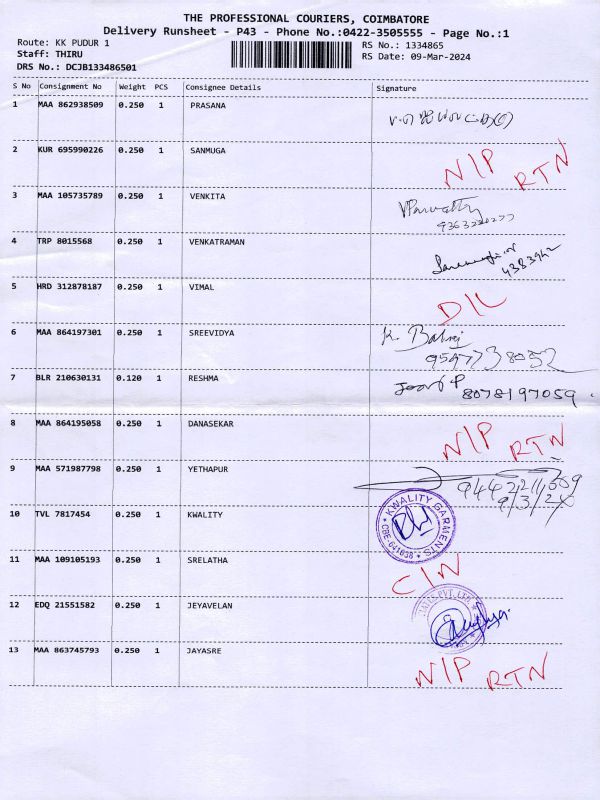 THE PROFESSIONAL COURIERS, COIMBATORE
Delivery Runsheet - P43 - Phone No.:0422-3505555 - Page No.:1
Route: KK PUDUR 1 RS No.: 1334865
Staff: THIRU RS Date: 09-Mar-2024
DRS No.: DCJB133486501
S No Consignment No Weight PCS Consignee Details Signature
1 MAA 862938509 0.250 1 PRASANA
2 KUR 695990226 0.250 1 SANMUGA N/P RTN
3 MAA 105735789 0.250 1 VENKITA VParvathy
9363220277
4 TRP 8015568 0.250 1 VENKATRAMAN
4383942
5 HRD 312878187 0.250 1 VIMAL D/L
6 MAA 864197301 0.250 1 SREEVIDYA K. Balraj
7 BLR 210630131 0.120 1 RESHMA 8078197059
8 MAA 864195058 0.250 1 DANASEKAR N/P RTN
9 MAA 571987798 0.250 1 YETHAPUR
9/3/24
10 TVL 7817454 0.250 1 KWALITY KWALITY GARMENTS * CBE-641038 *
11 MAA 109105193 0.250 1 SRELATHA C/N
12 EDQ 21551582 0.250 1 JEYAVELAN PVT. LTD.
13 MAA 863745793 0.250 1 JAYASRE N/P RTN